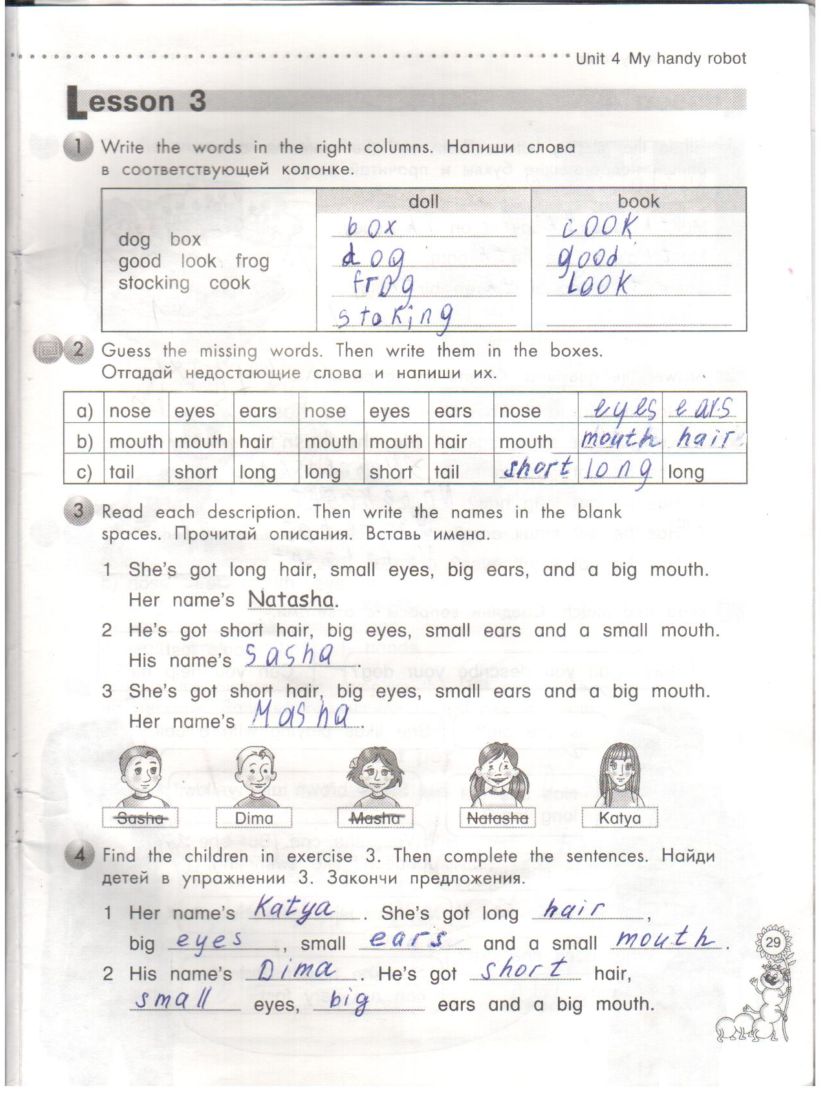 Unit 4 My handy robot
Lesson 3
1 Write the words in the right columns. Напиши слова
в соответствующей колонке.
doll book
dog box
good look frog
stocking cook
box cook
dog good
frog look
stoking
2 Guess the missing words. Then write them in the boxes.
Отгадай недостающие слова и напиши их.
a) nose eyes ears nose eyes ears nose eyes ears
b) mouth mouth hair mouth mouth hair mouth mouth hair
c) tail short long long short tail short long long
3 Read each description. Then write the names in the blank
spaces. Прочитай описания. Вставь имена.
1 She's got long hair, small eyes, big ears, and a big mouth.
Her name's Natasha.
2 He's got short hair, big eyes, small ears and a small mouth.
His name's Sasha.
3 She's got short hair, big eyes, small ears and a big mouth.
Her name's Masha.
Sasha Dima Masha Natasha Katya
4 Find the children in exercise 3. Then complete the sentences. Найди
детей в упражнении 3. Закончи предложения.
1 Her name's Katya. She's got long hair,
big eyes, small ears and a small mouth.
2 His name's Dima. He's got short hair,
small eyes, big ears and a big mouth.
29